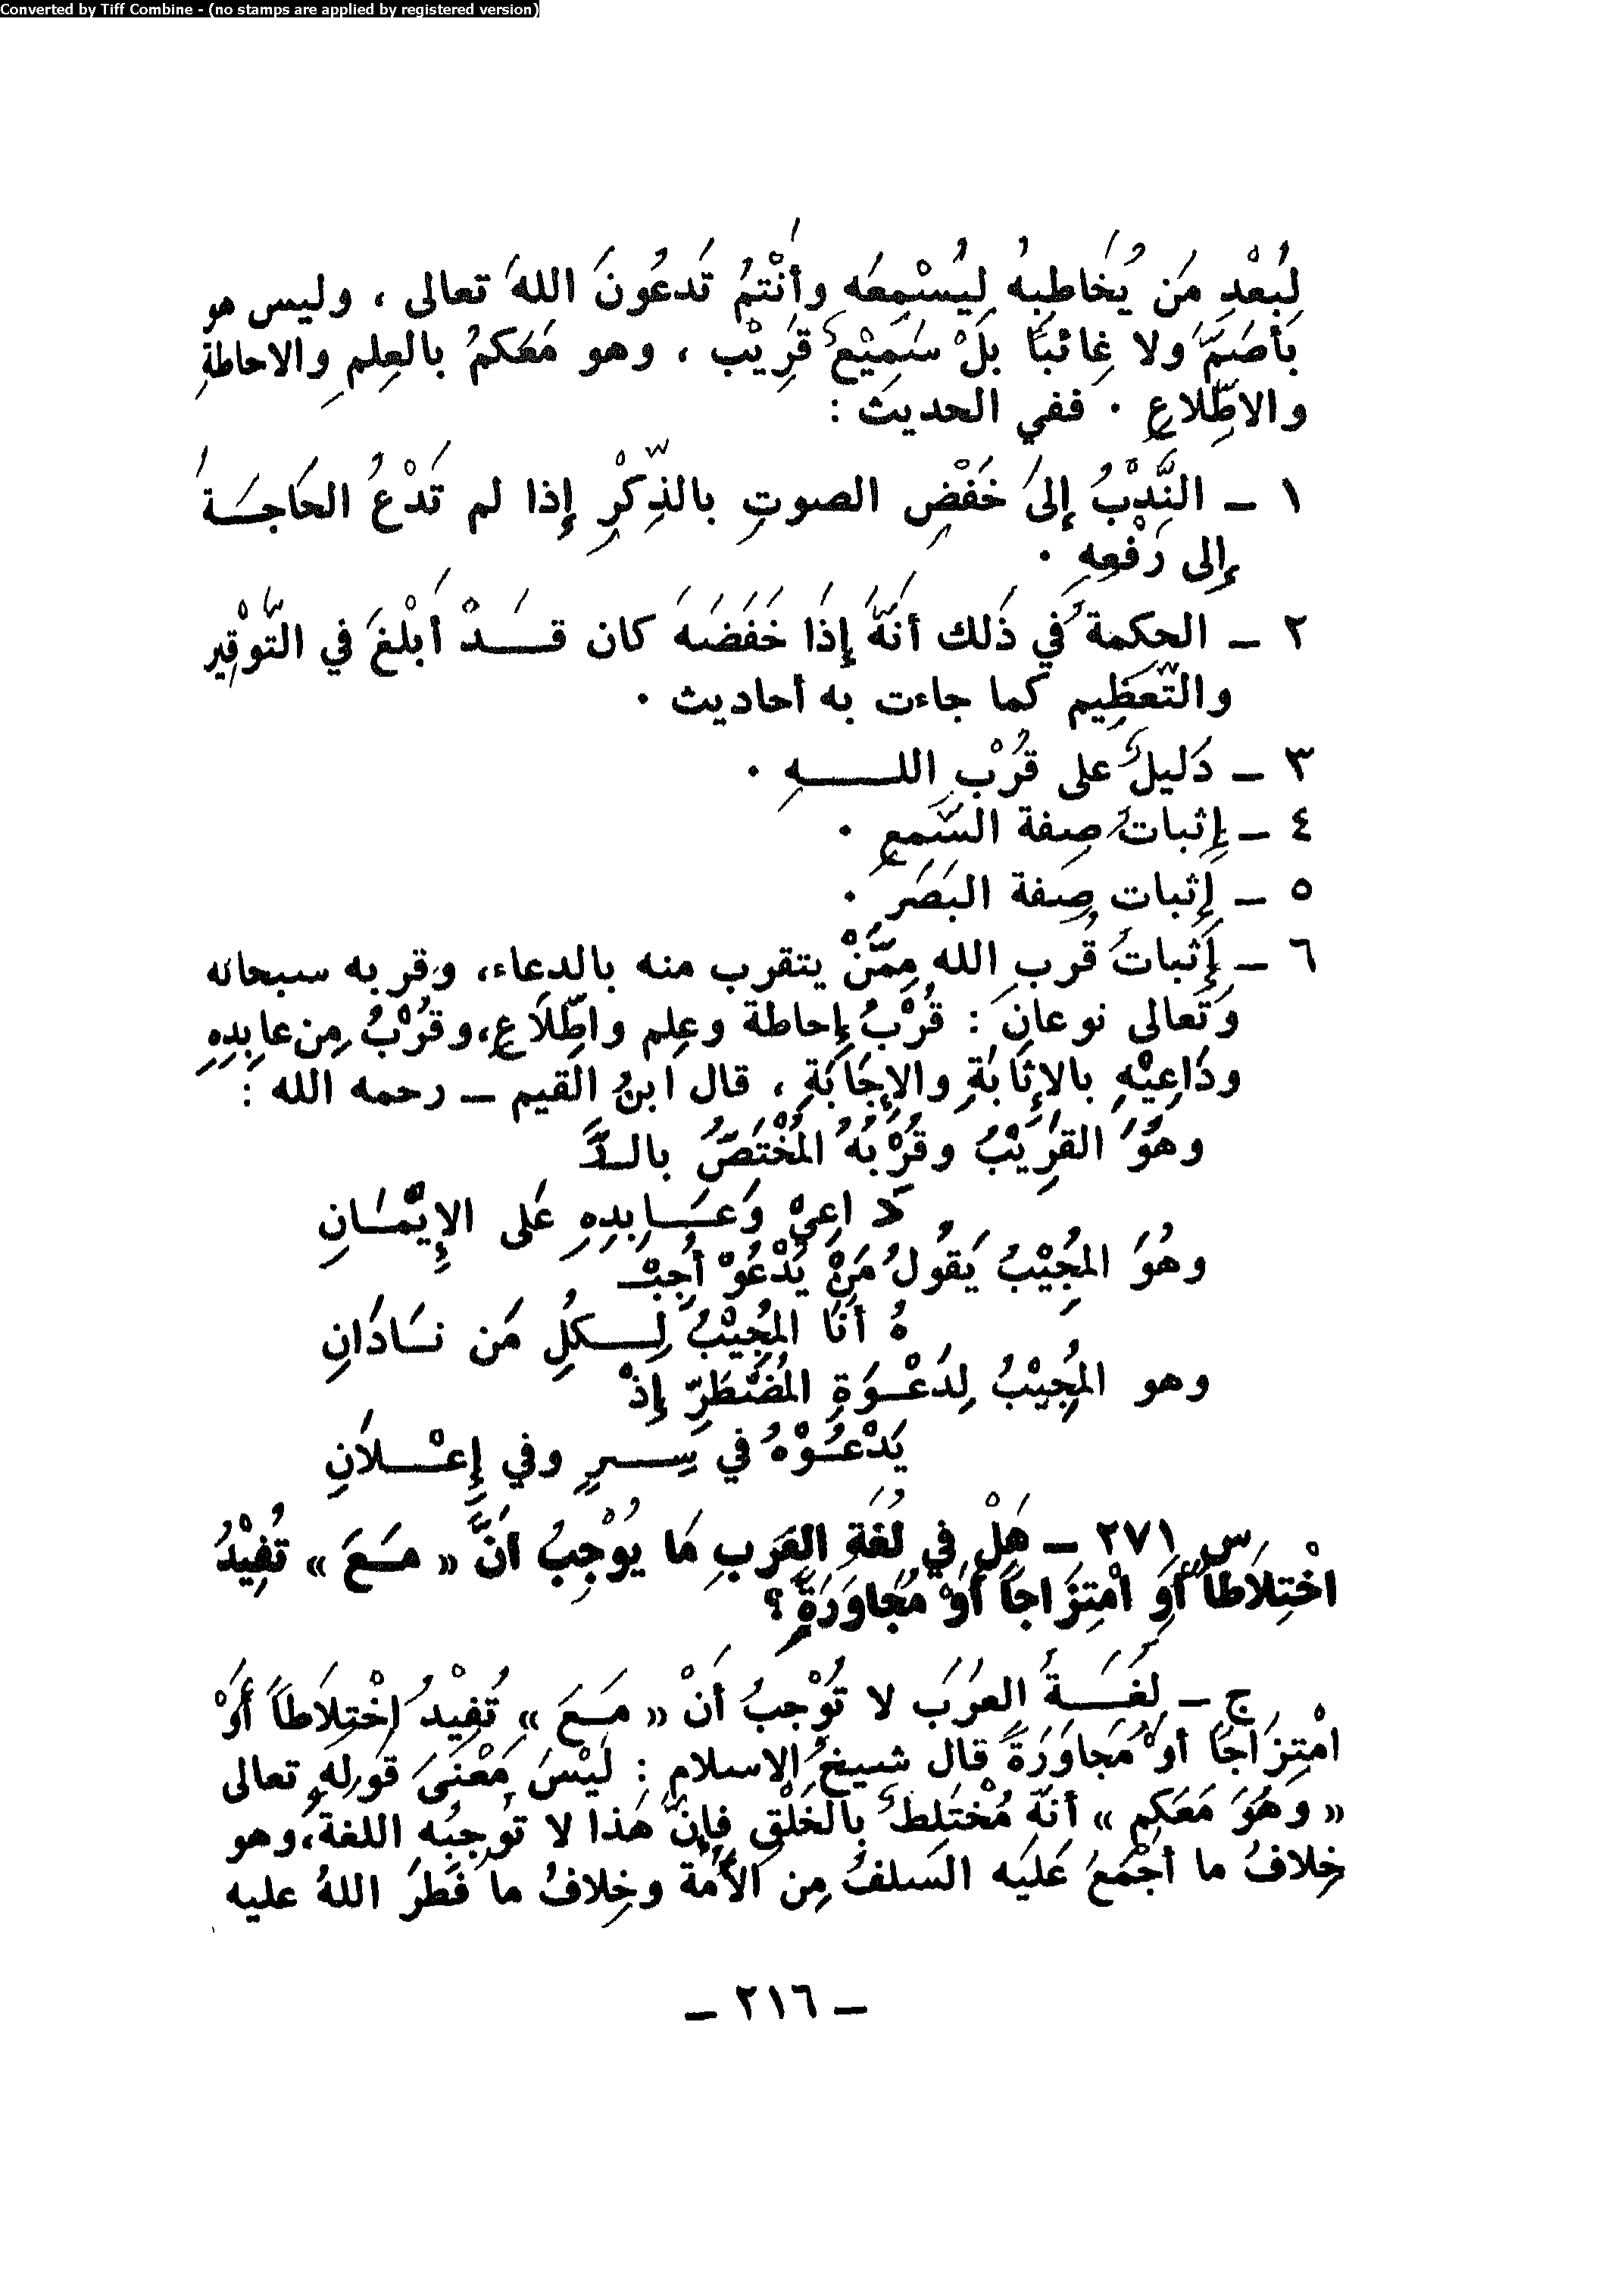 Converted by Tiff Combine - (no stamps are applied by registered version)
لِبُعْدِ مَن يُخاطِبهُ لِيُسْمِعَه وأنْتمُ تَدعُونَ اللهَ تعالى ، وليس هو
بَأصَمَّ ولا غِائباً بلْ سَمِيْعٌ قَرِيْب ، وهو مَعَكمُ بالعِلمِ والاحاطةِ
والاطِّلاعِ . ففي الحديث :
١ ــ النَّدْبُ إلىَ خَفْضِ الصوتِ بالذِّكْرِ إِذا لم تَدْعُ الحَاجَـةُ
إلى رَفْعِهِ .
٢ ــ الحكمةُ في ذَلك أنَّهُ إِذَا خَفَضَه كان قَـدْ أبْلغَ في التَّوْقِيرِ
والتَّعظِيم كما جاءت به أحاديث .
٣ ــ دَليلٌ على قُرْبِ اللــهِ .
٤ ــ إِثباتُ صِفة السَّمعِ .
٥ ــ إِثبات صِفة البَصَرِ .
٦ ــ إِثباتُ قُربِ الله مِمَّنْ يتقرب منه بالدعاء، وقربه سبحانه
وَتَعالى نوعانِ : قُرْبُ إحاطة وعِلم واطِّلَاعِ، وقُرْبُ مِن عابِدِهِ
ودَاعِيْهِ بالإثَابَةِ والإجَابَةِ ، قال ابنُ القيم ــ رحمه الله :
وهُوَ القَرِيْبُ وقُرْبُهُ المُخْتَصُّ بالـدَّ
اعِيْ وَعَـابِدِهِ عَلى الإِيْمَـانِ
وهُوَ المُجِيْبُ يَقُولُ مَنْ يَدْعُوْ أُجِبْـ
ـهُ أنَا المُجِيْبُ لِـكلِ مَن نـَادَانِ
وهو المُجِيْبُ لِدَعْـوَةِ المُضْطَرِّ إِذْ
يَدْعُـوْهُ في سِـرٍ وفي إِعْـلاَنِ
س ٢٧١ ــ هَلْ في لُغَةِ العَرَبِ مَا يُوْجِبُ أنَّ « مَـعَ » تُفِيْدُ
اخْتِلَاطاً أوَ امْتِزَاجاً أوْ مُجَاوَرَةً ؟
ج ــ لُغَـةُ العَرَبِ لا تُوْجِبُ أنْ « مَـعَ » تُفِيْدُ اخْتِلَاطاً أوْ
امْتِزَاجاً أوْ مُجاوَرَةً قال شيخُ الاسلامِ : لَيْسَ مَعْنَىَ قَولِهِ تعالى
« وهُوَ مَعَكم » أنهُ مُخْتَلِطٌ بِالخَلْقِ فإِنَّ هَذا لا تُوجِبُه اللغةُ، وهو
خِلافُ ما أجْمَعَ عَليَه السَلفُ مِن الأمَّة وخِلافُ ما فَطَرَ اللهُ عليه
ــ ٢١٦ ــ